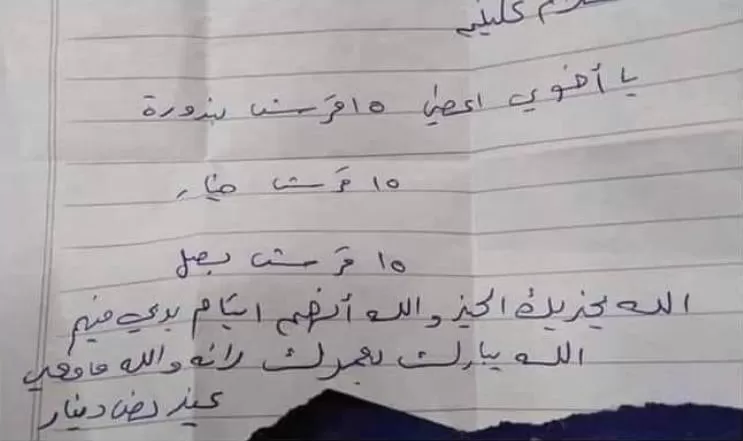 عليكم
يا أخوي اعطني ١٥ قرش بندورة
١٥ قرش خيار
١٥ قرش بصل
الله يجزيك الخير والله أنهم ايتام بدي فيهم
الله يبارك بعمرك وانه والله ما معي
غير نص دينار